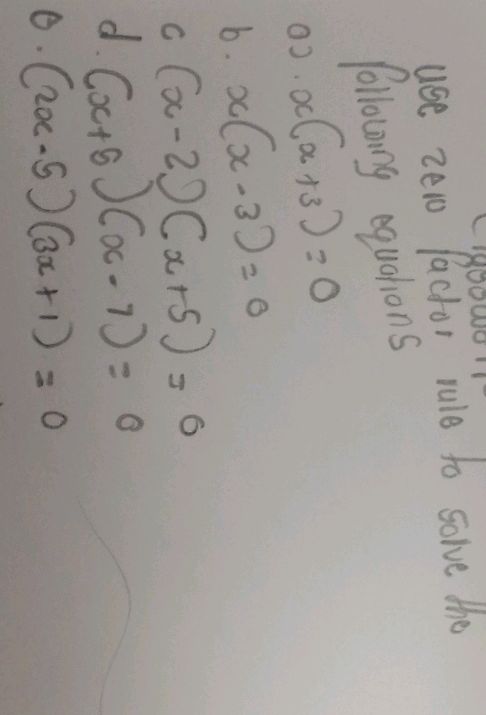 use zero factor rule to solve the
following equations
a). x(x+3) = 0
b. x(x-3) = 0
c (x-2)(x+5) = 0
d. (x+5)(x-7) = 0
e. (2x-5)(3x+1) = 0